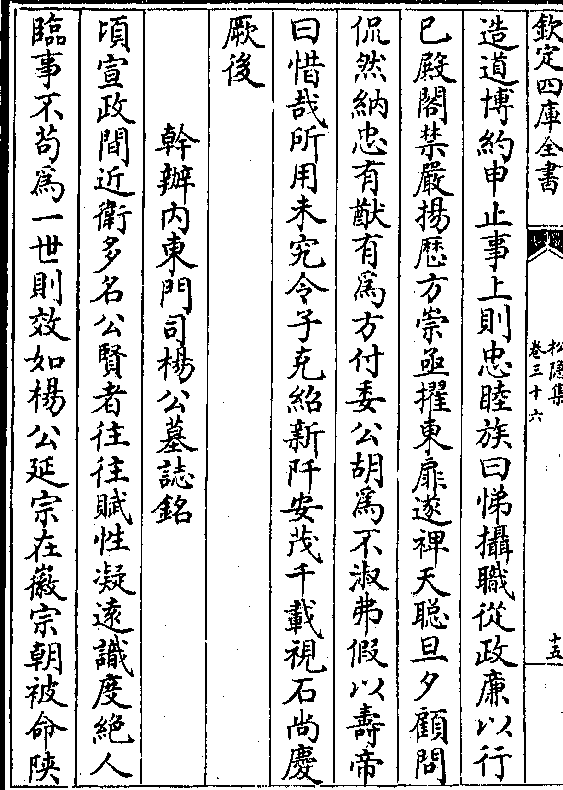 欽定四庫全書
松隱集
卷三十六
十五
造道博約申止事上則忠睦族曰悌攝職從政廉以行
已殿閣禁嚴揚歷方崇亟擢東扉遂裨天聰旦夕顧問
侃然納忠有猷有為方付委公胡為不淑弗假以壽帝
曰惜哉所用未究令子克紹新阡安茂千載視石尚慶
厥後
幹辦內東門司楊公墓誌銘
頃宣政間近衛多名公賢者往往賦性凝遠識度絶人
臨事不苟為一世則效如楊公延宗在徽宗朝被命陝